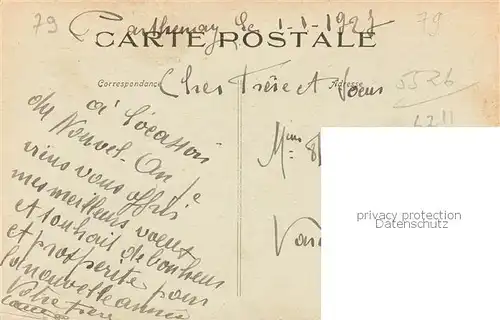 79 Parthenay le 1-1-1927 79
CARTE POSTALE
Correspondance Adresse
Cher Frère et Soeur
5526
a' l'occasion
du Nouvel-An je
viens vous offrir
mes meilleurs voeux
et souhait de bonheur
et prospérité pour
la nouvelle année
Votre frère
Mme
privacy protection
Datenschutz